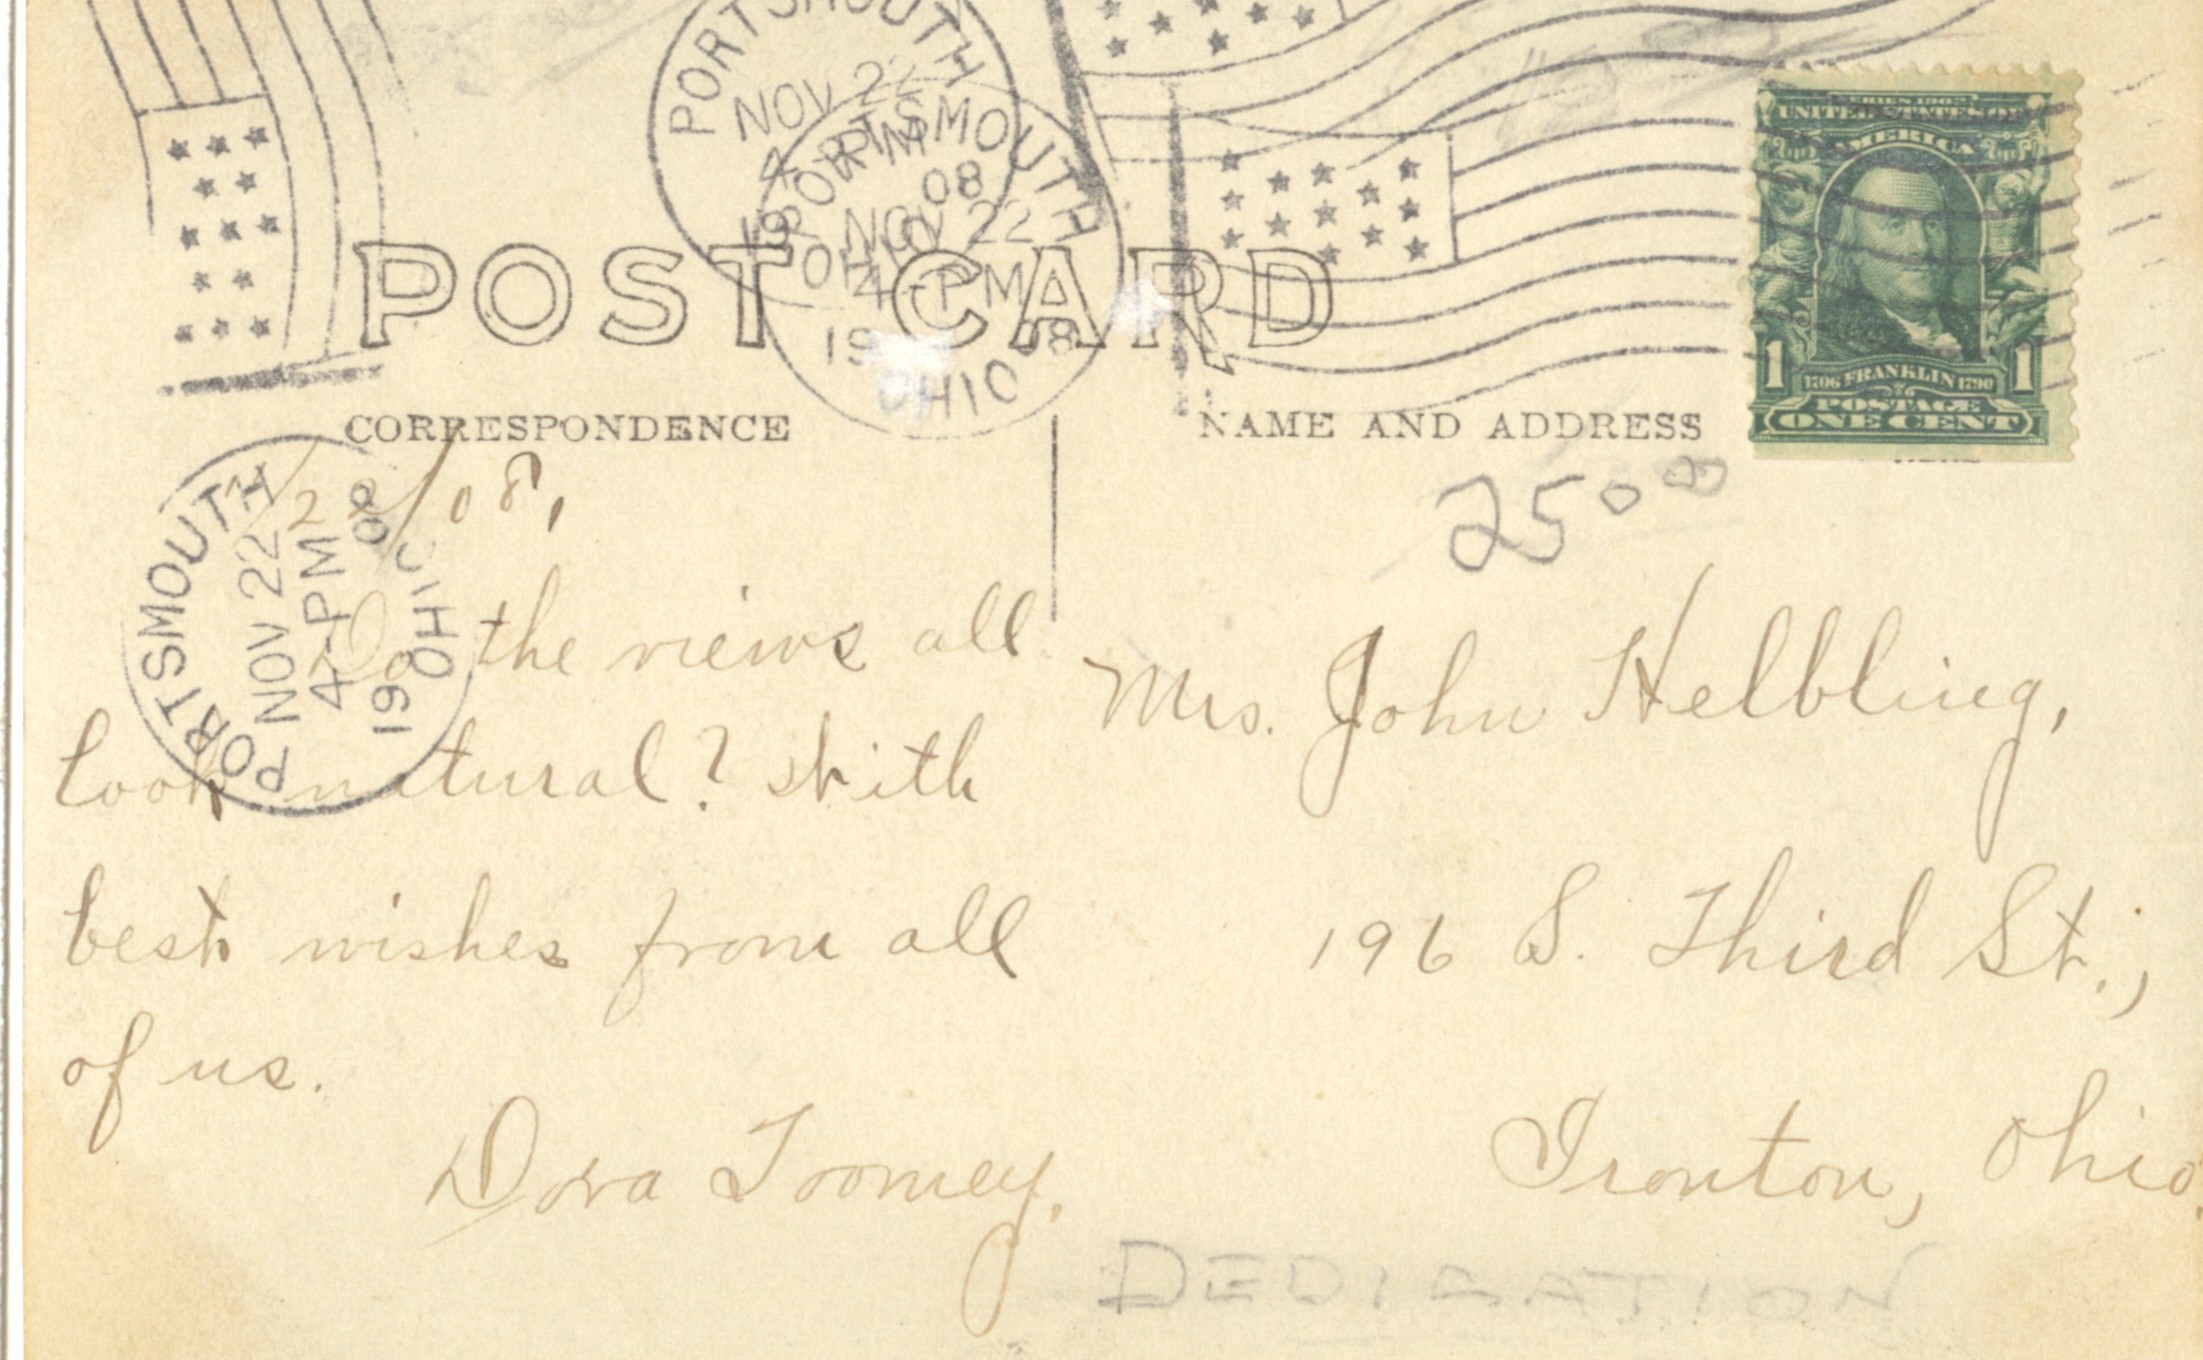 PORTSMOUTH
NOV 22
4-PM
1908
OHIO
PORTSMOUTH
NOV 22
4-PM
19 08
OHIO
SERIES 1902
UNITED STATES OF
AMERICA
1 1706 FRANKLIN 1790 1
POSTAGE
ONE CENT
POST CARD
CORRESPONDENCE
NAME AND ADDRESS
PORTSMOUTH
NOV 22
4-PM
1908
OHIO
22/08,
25 00
Do the views all
look natural? With
best wishes from all
of us.
Dora Toomey.
Mrs. John Helbling,
196 S. Third St.,
Ironton, Ohio.
DEDICATION